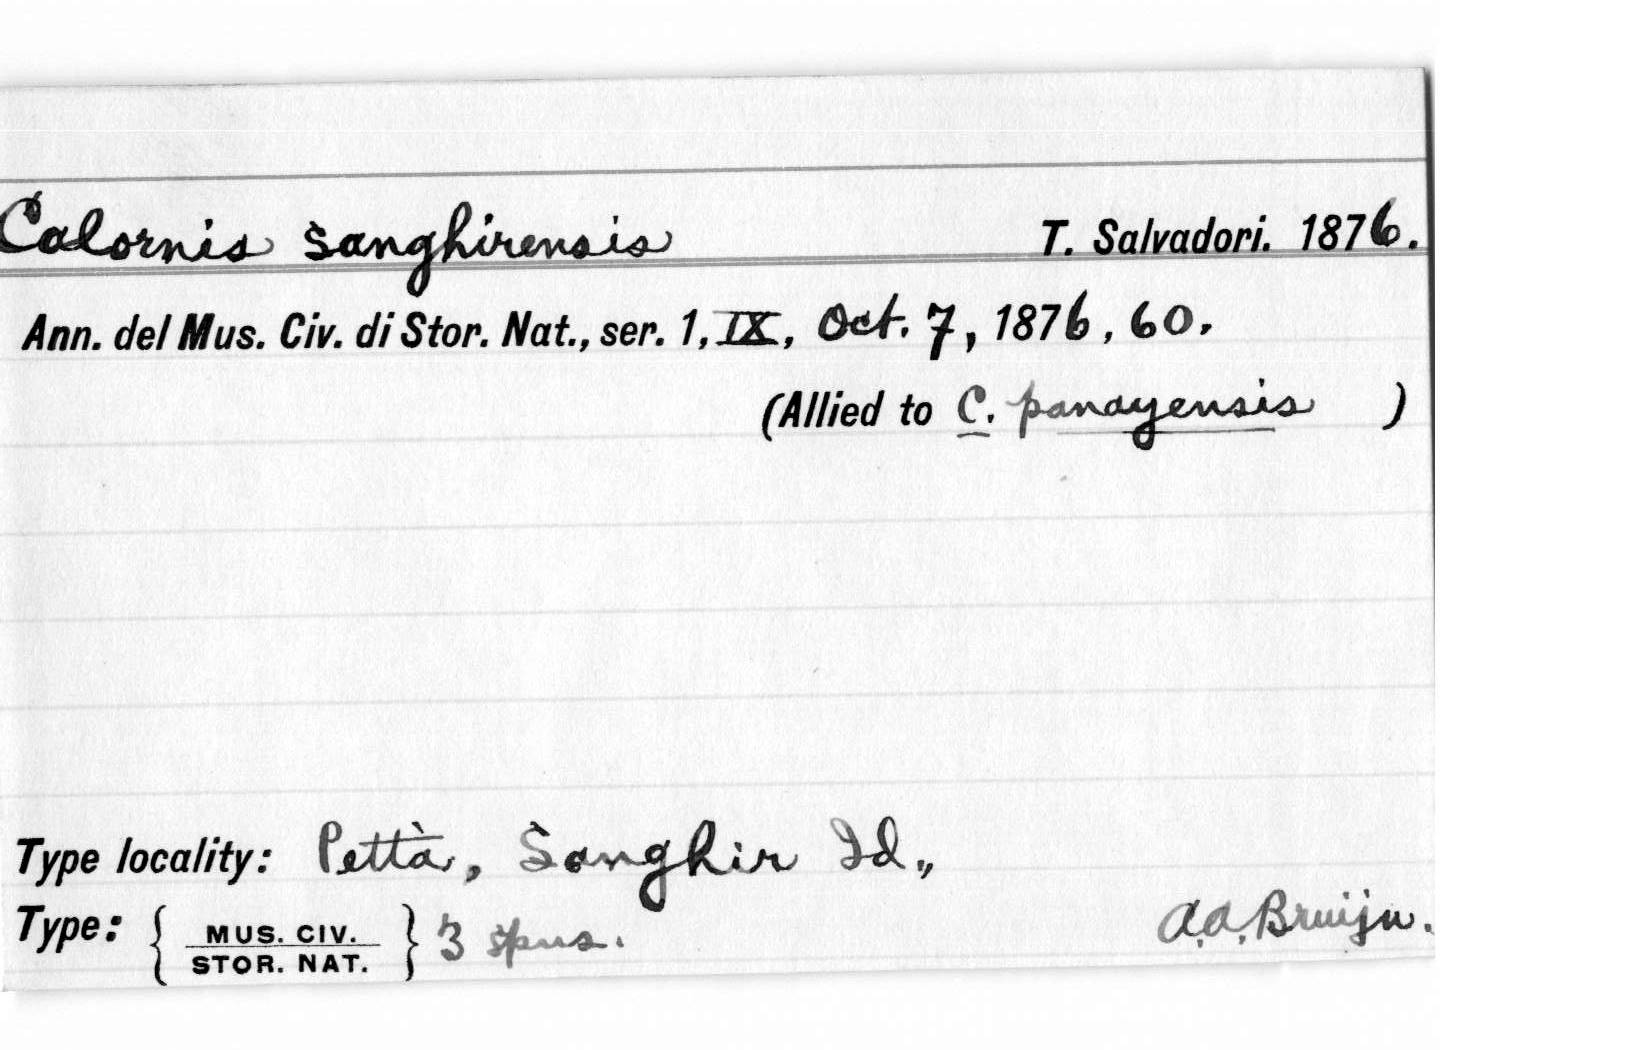 Calornis sanghirensis T. Salvadori. 1876.
Ann. del Mus. Civ. di Stor. Nat., ser. 1, IX, Oct. 7, 1876, 60.
(Allied to C. panayensis )
Type locality: Pettà, Sanghir Id.,
Type: { MUS. CIV. STOR. NAT. } 3 spns. A.A. Bruijn.